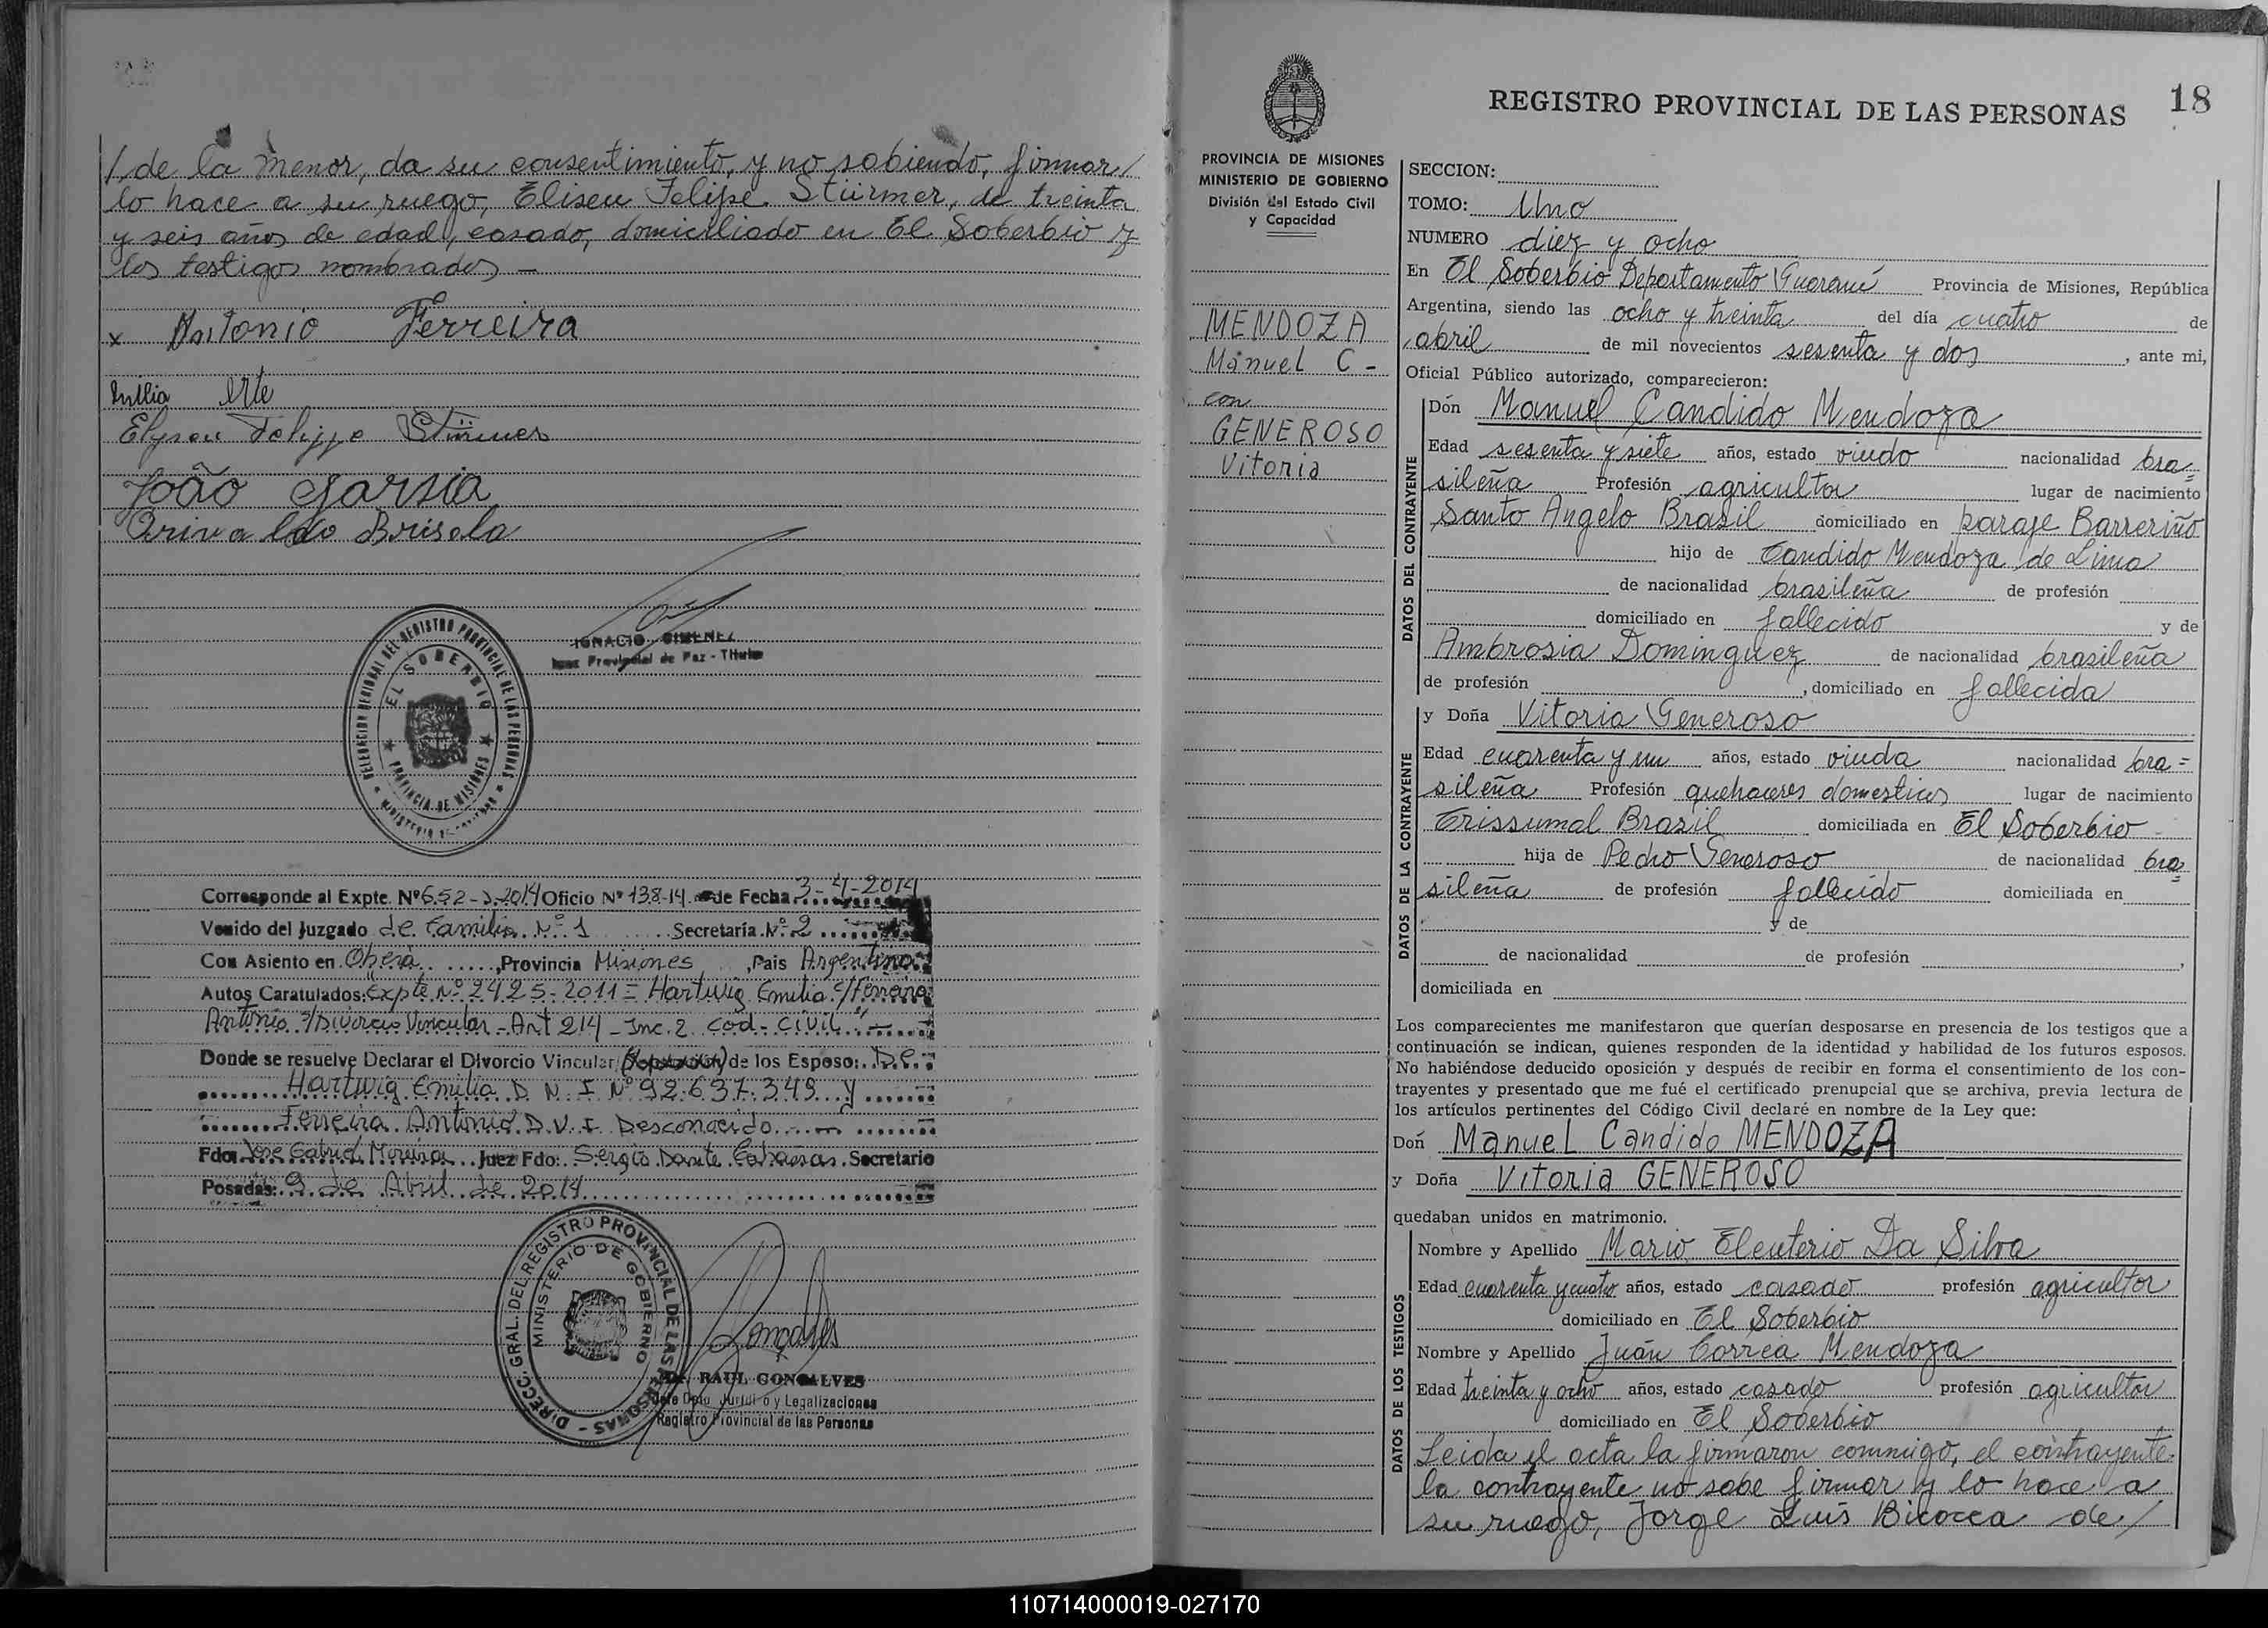 / de la menor, da su consentimiento, y no sabiendo, firmar/
lo hace a su ruego, Eliseu Felipe Stürmer, de treinta
y seis años de edad, casado, domiciliado en El Soberbio y
los testigos nombrados —
x Antonio Ferreira
Erte
Stürmer
João Garsia
Brisola
IGNACIO GIMENEZ
Juez Provincial de Paz - Titular
DELEGACION REGIONAL DEL REGISTRO PROVINCIAL DE LAS PERSONAS
EL SOBERBIO
PROVINCIA DE MISIONES
Corresponde al Expte. Nº 652-J-2014 Oficio Nº 138-14 de Fecha 3-4-2014
Venido del Juzgado de Familia Nº 1 Secretaría Nº 2
Con Asiento en Oberá, Provincia Misiones, Pais Argentina
Autos Caratulados: Expte Nº 2425-2011= Hartwig Emilia c/Ferreira
Antonio s/Divorcio Vincular - Art 214 - Inc. 2 Cod. Civil" -
Donde se resuelve Declarar el Divorcio Vincular de los Esposo: De
Hartwig Emilia D N I Nº 92.637.349 y
Ferreira Antonio D.N.I. Desconocido
Fdo: Jose Gabriel Moreira Juez Fdo: Sergio Dante Secretario
Posadas: 9 de Abril de 2014
DIRECC. GRAL. DEL REGISTRO PROVINCIAL DE LAS PERSONAS
MINISTERIO DE GOBIERNO
Gonçalves
Dr. RAUL GONCALVES
Jefe Dpto Jurídico y Legalizaciones
Registro Provincial de las Personas
REGISTRO PROVINCIAL DE LAS PERSONAS
18
PROVINCIA DE MISIONES
MINISTERIO DE GOBIERNO
División del Estado Civil
y Capacidad
MENDOZA
Manuel C -
con
GENEROSO
Vitoria
SECCION:
TOMO: Uno
NUMERO diez y ocho
En El Soberbio Departamento Guaraní Provincia de Misiones, República
Argentina, siendo las ocho y treinta del día cuatro de
abril de mil novecientos sesenta y dos, ante mi,
Oficial Público autorizado, comparecieron:
DATOS DEL CONTRAYENTE
Don Manuel Candido Mendoza
Edad sesenta y siete años, estado viudo nacionalidad bra=
sileña Profesión agricultor lugar de nacimiento
Santo Angelo Brasil domiciliado en paraje Barreriño
hijo de Candido Mendoza de Lima
de nacionalidad brasileña de profesión
domiciliado en fallecido y de
Ambrosia Dominguez de nacionalidad brasileña
de profesión , domiciliado en fallecida
DATOS DE LA CONTRAYENTE
y Doña Vitoria Generoso
Edad cuarenta y un años, estado viuda nacionalidad bra=
sileña Profesión quehaceres domesticos lugar de nacimiento
Crissumal Brazil domiciliada en El Soberbio
hija de Pedro Generoso de nacionalidad bra=
sileña de profesión fallecido domiciliada en
y de
de nacionalidad de profesión ,
domiciliada en
Los comparecientes me manifestaron que querían desposarse en presencia de los testigos que a
continuación se indican, quienes responden de la identidad y habilidad de los futuros esposos.
No habiéndose deducido oposición y después de recibir en forma el consentimiento de los con-
trayentes y presentado que me fué el certificado prenupcial que se archiva, previa lectura de
los artículos pertinentes del Código Civil declaré en nombre de la Ley que:
Don Manuel Candido MENDOZA
y Doña Vitoria GENEROSO
quedaban unidos en matrimonio.
DATOS DE LOS TESTIGOS
Nombre y Apellido Mario Eleuterio Da Silva
Edad cuarenta y cuatro años, estado casado profesión agricultor
domiciliado en El Soberbio
Nombre y Apellido Juán Correa Mendoza
Edad treinta y ocho años, estado casado profesión agricultor
domiciliado en El Soberbio
Leida el acta la firmaron conmigo, el contrayente
la contrayente no sabe firmar y lo hace a
su ruego, Jorge Luis Bicocca de/
110714000019-027170